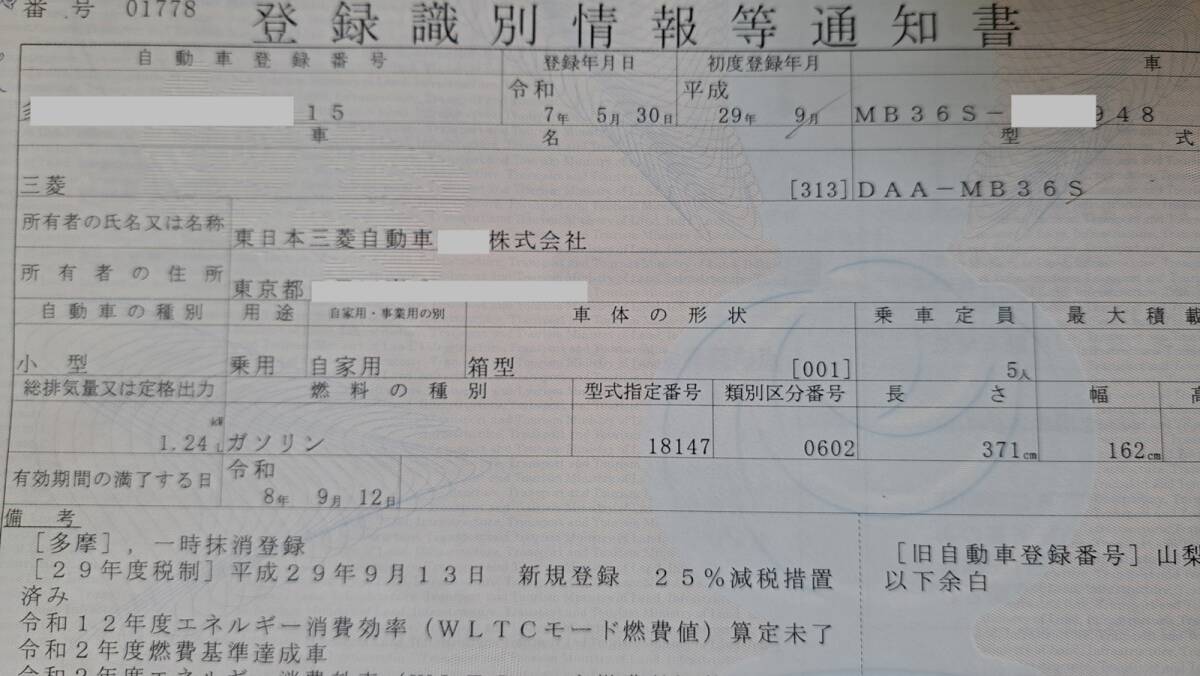 番号 01778
登録識別情報等通知書
自動車登録番号 登録年月日 初度登録年月 車
15 令和 7年 5月 30日 平成 29年 9月 MB36S- 948
車名 型式
三菱 [313] DAA-MB36S
所有者の氏名又は名称 東日本三菱自動車 株式会社
所有者の住所 東京都
自動車の種別 用途 自家用・事業用の別 車体の形状 乗車定員 最大積載
小型 乗用 自家用 箱型 [001] 5人
総排気量又は定格出力 燃料の種別 型式指定番号 類別区分番号 長さ 幅
kW 1.24 L ガソリン 18147 0602 371cm 162cm
有効期間の満了する日 令和 8年 9月 12日
備考
[多摩],一時抹消登録
[29年度税制]平成29年9月13日 新規登録 25%減税措置
済み
令和12年度エネルギー消費効率(WLTCモード燃費値)算定未了
令和2年度燃費基準達成車
[旧自動車登録番号]山梨
以下余白